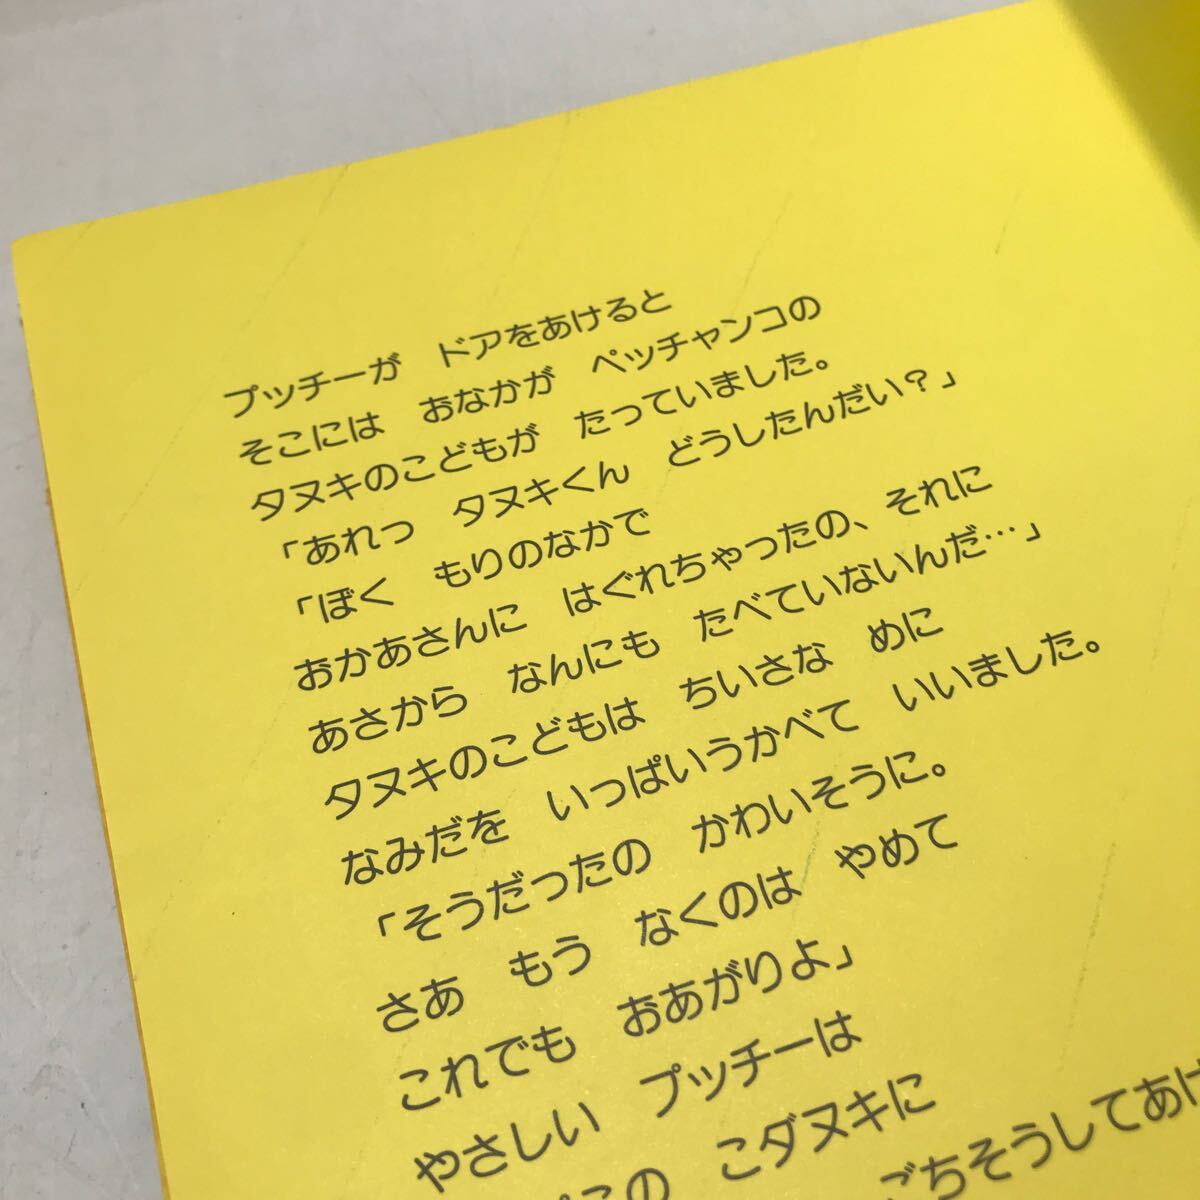 プッチーが　ドアをあけると
そこには　おなかが　ペッチャンコの
タヌキのこどもが　たっていました。
「あれっ　タヌキくん　どうしたんだい？」
「ぼく　もりのなかで
おかあさんに　はぐれちゃったの、それに
あさから　なんにも　たべていないんだ…」
タヌキのこどもは　ちいさな　めに
なみだを　いっぱいうかべて　いいました。
「そうだったの　かわいそうに。
さあ　もう　なくのは　やめて
これでも　おあがりよ」
やさしい　プッチーは
この　こダヌキに
ごちそうしてあげ